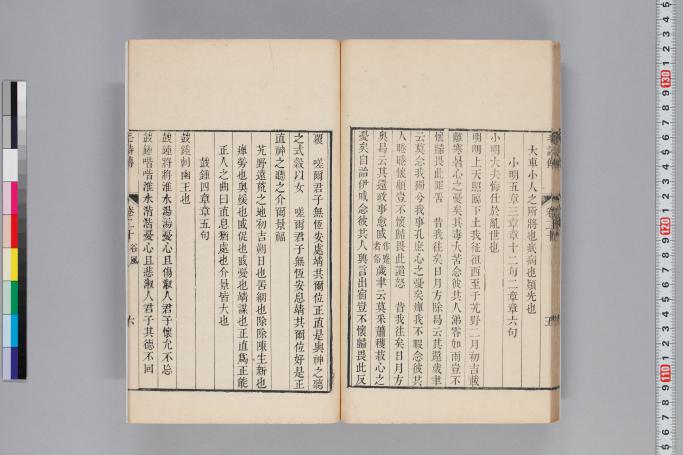 大車小人之所將也疧病也熲光也
小明五章三章章十二句二章章六句
小明大夫悔仕於亂世也
明明上天照臨下土我征徂西至于艽野二月初吉載
離寒暑心之憂矣其毒大苦念彼共人涕零如雨豈不
懷歸畏此罪罟 昔我往矣日月方除曷云其還歲聿
云莫念我獨兮我事孔庶心之憂矣憚我不暇念彼共
人睠睠懷顧豈不懷歸畏此譴怒 昔我往矣日月方
奧曷云其還政事愈戚歲聿云莫采蕭穫菽心之
憂矣自詒伊戚念彼共人興言出宿豈不懷歸畏此反
覆 嗟爾君子無恆安處靖共爾位正直是與神之聽
之式穀以女 嗟爾君子無恆安息靖共爾位好是正
直神之聽之介爾景福
艽野遠荒之地初吉朔日也罟網也除除陳生新也
憚勞也奧煖也戚促也戚憂也靖謀也正直爲正能
正人之曲曰直息猶處也介景皆大也
鼓鍾四章章五句
鼓鍾刺幽王也
鼓鍾將將淮水湯湯憂心且傷淑人君子懷允不忘
鼓鍾喈喈淮水湝湝憂心且悲淑人君子其德不回
毛詩傳
卷二十
谷風
六